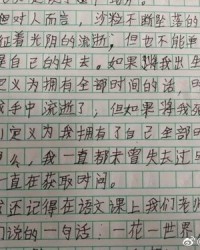 但对人而言，沙粒不断坠落的
征着光阴的流逝；但也不能
是自己的失去。如果将我出生
定义为拥有全部时间的话，
我手中流逝了，但如果将我死
定义为我拥有了自己全部
么，我一直都未曾失去过
直在获取时间。
还记得在语文课上我们老师
说的一句话：一花一世界